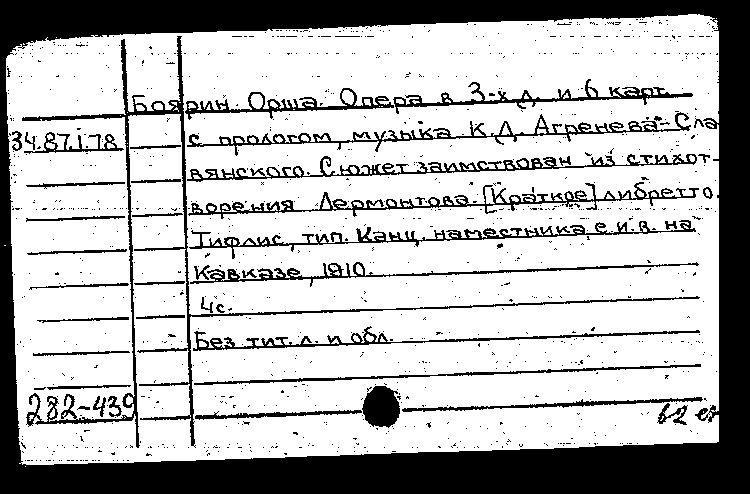 Боярин Орша. Опера в 3-х д. и 6 карт.
34.87.1.78
с прологом, музыка К.Д. Агренева-Сла-
вянского. Сюжет заимствован из стихот-
ворения Лермонтова. [Краткое] либретто.
Тифлис, тип. Канц. наместника е.и.в. на
Кавказе, 1910.
4с.
Без тит. л. и обл.
282-439
62